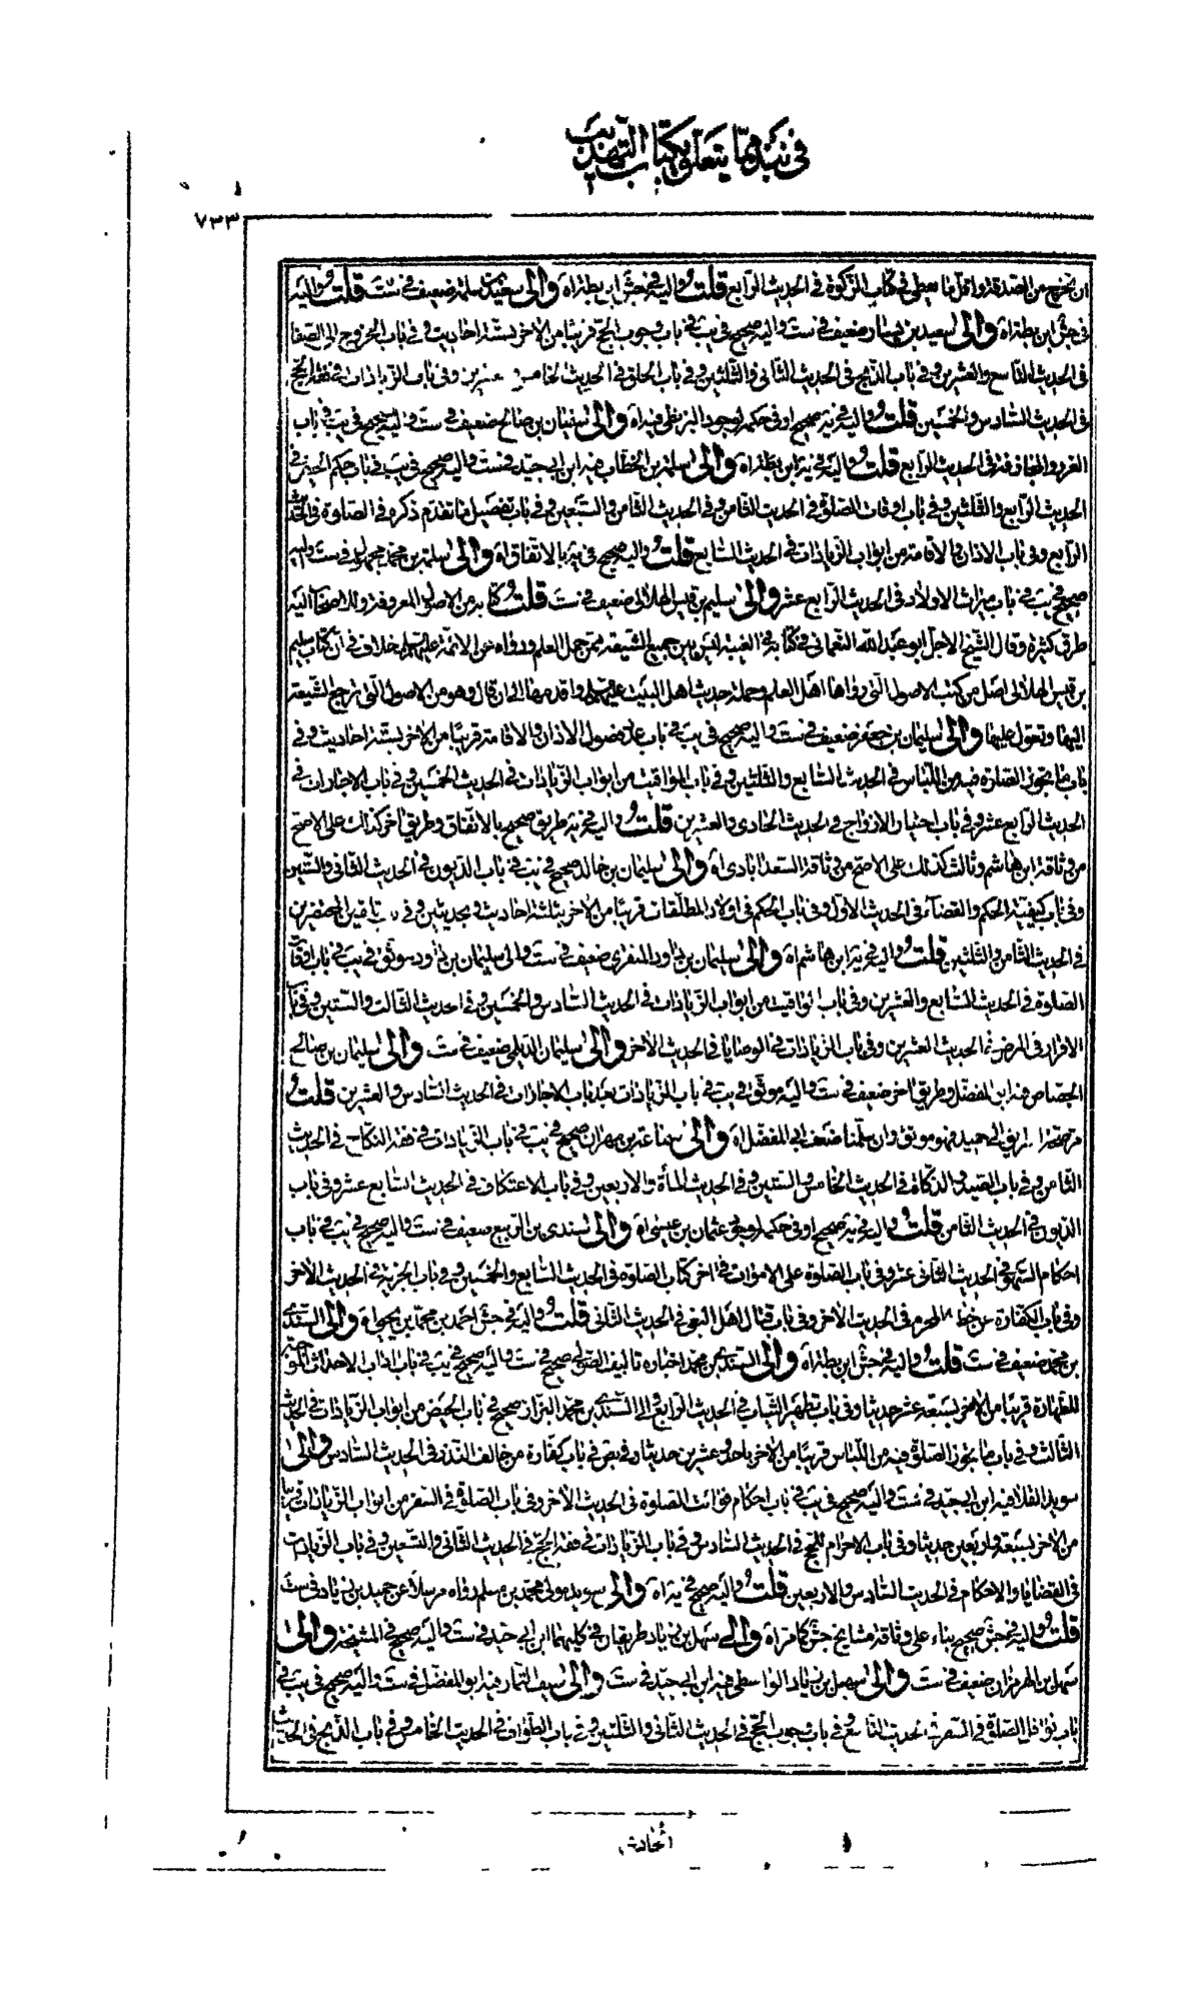 في نبذة مما يتعلق بكتاب التهذيب
٧٣٣
ان يخرج من الصدقة واقل ما يعطى في كتاب الزكوة في الحديث الرابع قلت واليه في جش ابن بطة اه والى سعيد بن مسلمة ضعيف في ست قلت واليه
في جش ابن بطة اه والى سعيد بن يسار ضعيف في ست واليه صحيح في يب في باب وجوب الحج قريبا من الاخر بستة احاديث وفي باب الخروج الى الصفا
في الحديث التاسع والعشرين وفي باب الذبح في الحديث الثاني والثلثين وفي باب الحلق في الحديث الخامس عشرين وفي باب الزيادات في فقه الحج
في الحديث السادس والخمسين قلت واليه في يه صحيح او في حكمه لوجود البزنطي فيه اه والى سفيان بن صالح ضعيف في ست واليه صحيح في يب في باب
الغرر والمجازفة في الحديث الرابع قلت واليه في يه ابن بطة اه والى سلمة بن الخطاب فيه ابن ابي جيد في ست واليه صحيح في يب في باب حكم الحيض في
الحديث الرابع والثلثين وفي باب اوقات الصلوة في الحديث الثامن وفي الحديث الثامن والسبعين وفي باب تفصيل ما تقدم ذكره في الصلوة في الحديث
الرابع وفي باب الاذان والاقامة من ابواب الزيادات في الحديث السابع قلت واليه صحيح في يه بالاتفاق اه والى سلمة بن محمد مجهول في ست واليه
صحيح في يب في باب ميراث الاولاد في الحديث الرابع عشر والى سليم بن قيس الهلالي ضعيف في ست قلت كتابه من الاصول المعروفة وللاصحاب اليه
طرق كثيرة وقال الشيخ الاجل ابو عبد الله النعماني في كتابه في الغيبة ليس بين جميع الشيعة ممن حمل العلم ورواه عن الائمة عليهم السلم خلاف في ان كتاب سليم
بن قيس الهلالي اصل من كتب الاصول التي رواها اهل العلم وحملة حديث اهل البيت عليهم السلم واقدمها الى ان قال وهو من الاصول التي ترجع الشيعة
اليها وتعول عليها والى سليمان بن جعفر ضعيف في ست واليه صحيح في يب في باب عدد فصول الاذان والاقامة قريبا من الاخر بستة احاديث وفي
باب ما يجوز الصلوة فيه من اللباس في الحديث السابع والثلثين وفي باب المواقيت من ابواب الزيادات في الحديث الخمسين وفي باب الاجارات في
الحديث الرابع عشر وفي باب اختيار الازواج في الحديث الحادي والعشرين قلت واليه في يه طريق صحيح بالاتفاق وطريق اخر كذلك على الاصح
من وثاقة ابن هاشم وثالث كذلك على الاصح من وثاقة السعد ابادي اه والى سليمان بن خالد صحيح في يب في باب الديون في الحديث الثاني والستين
وفي باب كيفية الحكم والقضاء في الحديث الاول وفي باب الحكم في اولاد المطلقات قريبا من الاخر بثلثة احاديث وبحديثين وفي باب تلقين المحتضرين
في الحديث الثامن والثلثين قلت واليه في يه ابن هاشم اه والى سليمان بن داود المنقري ضعيف في ست والى سليمان بن داود موثق في يب في باب اوقات
الصلوة في الحديث السابع والعشرين وفي باب المواقيت من ابواب الزيادات في الحديث السادس والخمسين وفي الحديث الثالث والستين وفي باب
الاقرار في المرض في الحديث العشرين وفي باب الزيادات في الوصايا في الحديث الاخر والى سليمان الديلمي ضعيف في ست والى سليمان بن صالح
الجصاص فيه ابو المفضل وطريق اخر ضعيف في ست واليه موثق في يب في باب الزيادات بعد باب الاجارات في الحديث السادس والعشرين قلت
طريق الى حميد فهو موثق وان سلمنا ضعف ابي المفضل اه والى سماعة بن مهران صحيح في يب في باب الزيادات في فقه النكاح في الحديث
الثامن وفي باب الصيد والذكاة في الحديث الخامس والستين وفي الحديث المأة والاربعين وفي باب الاعتكاف في الحديث السابع عشر وفي باب
الديون في الحديث الثامن قلت واليه في يه صحيح او في حكمه لوجود عثمان بن عيسى اه والى سندي بن الربيع ضعيف في ست واليه صحيح في يب في باب
احكام السهو في الحديث الثاني عشر وفي باب الصلوة على الاموات في اخر كتاب الصلوة في الحديث السابع والخمسين وفي باب الجزية في الحديث الاخر
وفي باب الكفارة عن خطأ المحرم في الحديث الاخر وفي باب قتال اهل البغي في الحديث الثاني قلت واليه في جش احمد بن محمد بن يحيى اه والى السندي
بن محمد ضعيف في ست قلت واليه في جش ابن بطة اه والى السندي بن محمد اخباره تاليف الصولي صحيح في ست واليه صحيح في يب في باب اداب الاحداث الموجبة
للطهارة قريبا من الاخر بسبعة عشر حديثا وفي باب تطهير الثياب في الحديث الرابع والى السندي بن محمد البزاز صحيح في باب الحيض من ابواب الزيادات في الحديث
الثالث وفي باب ما يجوز الصلوة فيه من اللباس قريبا من الاخر باحد وعشرين حديثا وفي بص في باب كفارة من خالف النذر في الحديث السادس والى
سويد القلا فيه ابن ابي جيد في ست واليه صحيح في يب في باب احكام فوائت الصلوة في الحديث الاخر وفي باب الصلوة في السفر من ابواب الزيادات قريبا
من الاخر بسبعة واربعين حديثا وفي باب الاحرام للحج في الحديث السادس وفي باب الزيادات في فقه الحج في الحديث الثاني والتسعين وفي باب الزيادات
في القضايا والاحكام في الحديث السادس والاربعين قلت واليه صحيح في يه اه والى سويد مولى محمد بن مسلم رواه مرسلا عن حميد بن زياد في ست
قلت واليه في جش صحيح بناء على وثاقة مشايخ جش كما مر اه والى سهل بن زياد طريقان في كليهما ابن ابي جيد في ست واليه صحيح في المشيخة والى
سهل بن الهرمزان ضعيف في ست والى سهيل بن زياد الواسطي فيه ابن ابي جيد في ست والى سيف التمار فيه ابو المفضل في ست واليه صحيح في يب في
باب نوافل الصلوة في السفر في الحديث التاسع وفي باب وجوب الحج في الحديث الثاني والثلثين وفي باب الطواف في الحديث الخامس وفي باب الذبح في الحديث
الحادي